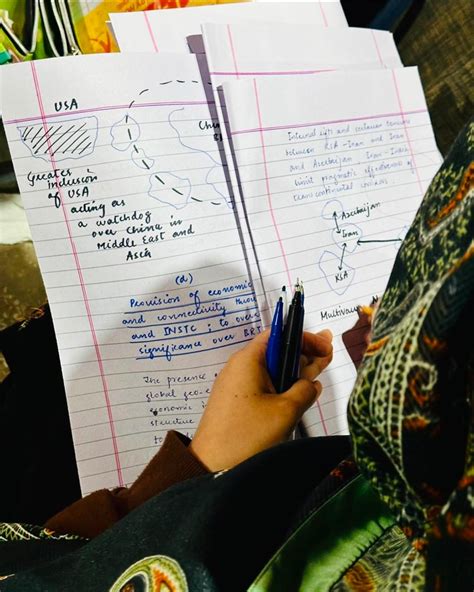 USA
Greater
inclusion
of USA
acting as
a watchdog
over China in
Middle East and
Asia
(d)
Provision of economic
and connectivity
and INSTC ; to
significance over
The presence
global
economic
structure
to
Internal rifts and sectarian tensions
between KSA - Iran and Iran
and Azerbaijan
limit pragmatic effectiveness of
transcontinental
Azerbaijan
Iran
KSA